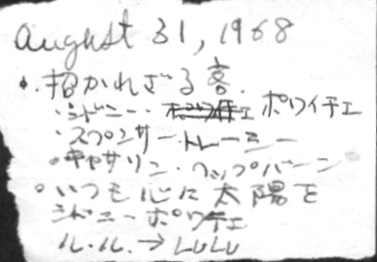 August 31, 1968
・招かれざる客.
・シドニー・ポワイチェ
・スペンサー・トレーシー
・キャサリン・ヘップバーン
○いつも心に太陽を
シドニーポワチェ
ル・ル.→LULU